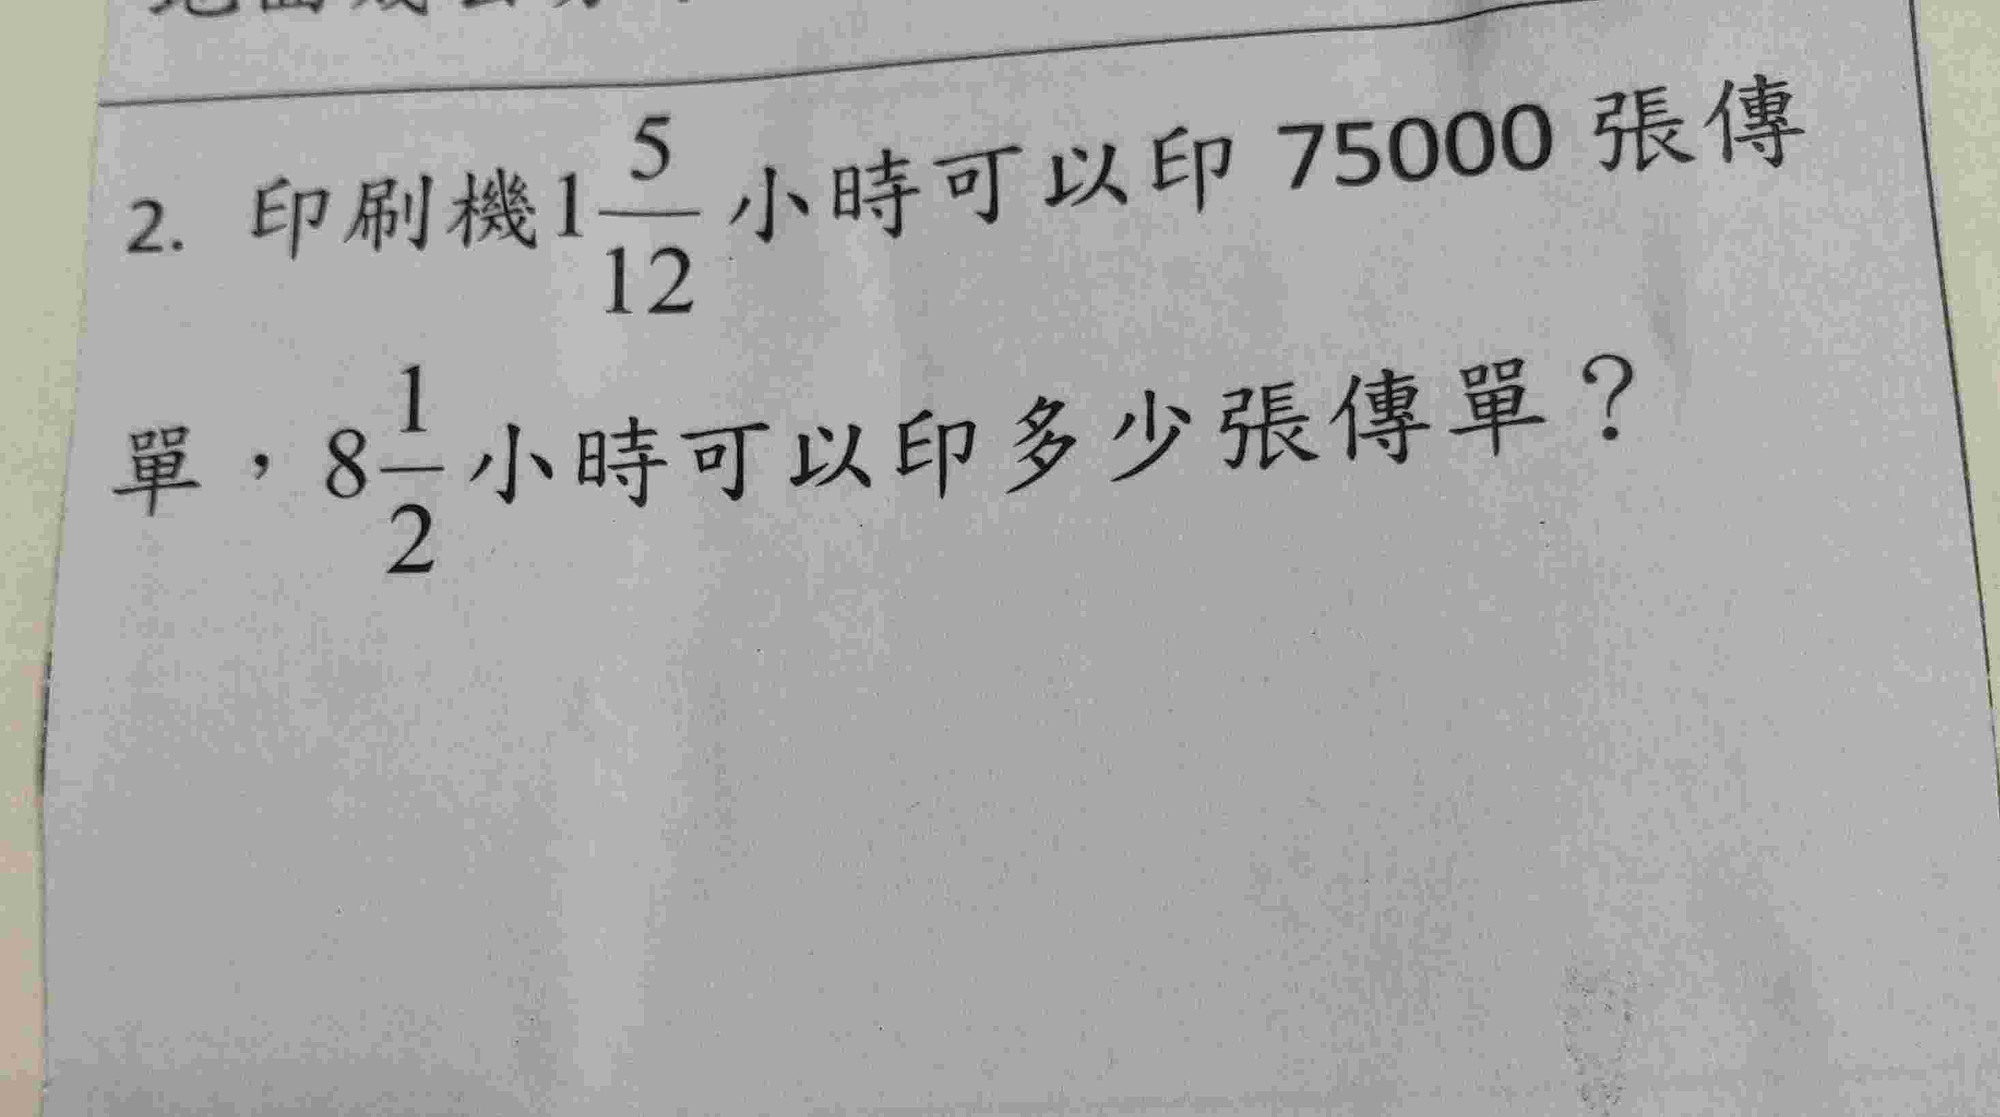 2. 印刷機1 5/12 小時可以印 75000 張傳
單，8 1/2 小時可以印多少張傳單？